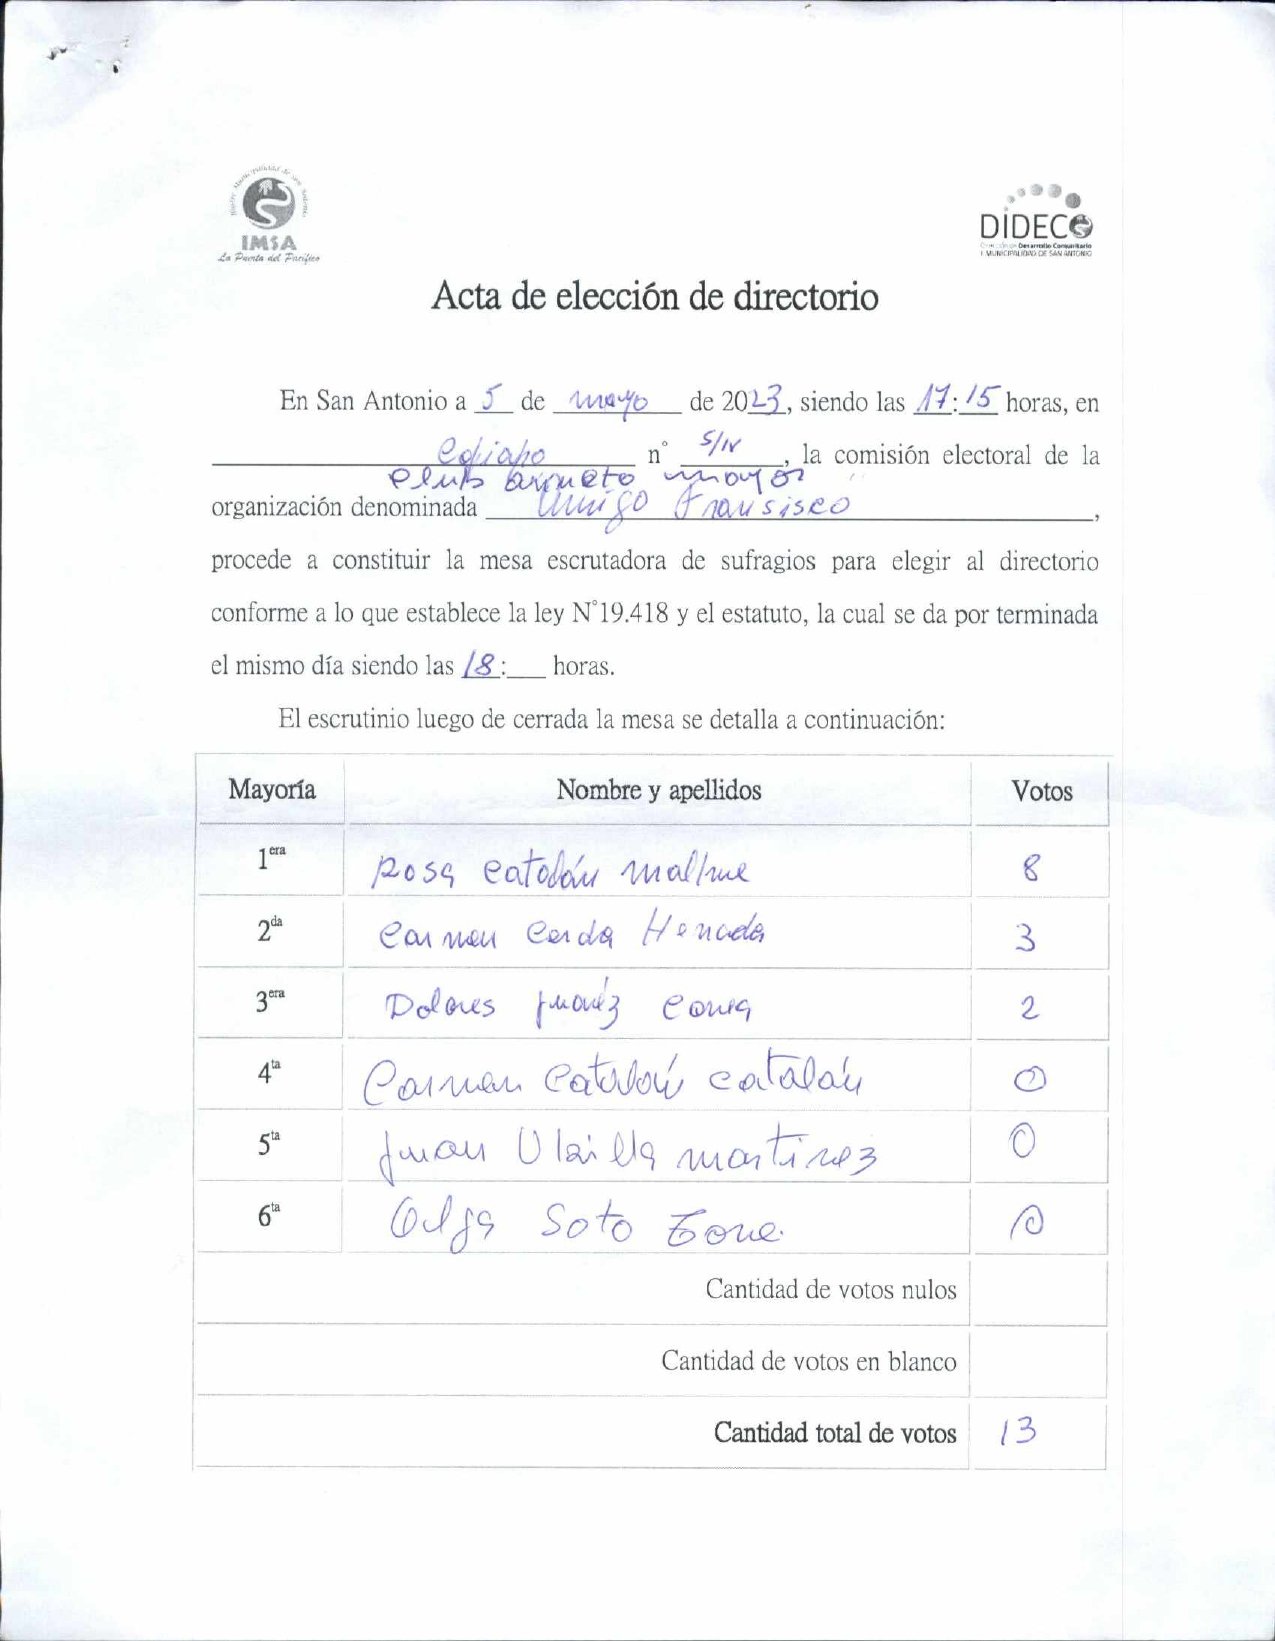 Ilustre Municipalidad de San Antonio
IMSA
La Puerta del Pacífico
DIDECO
Dirección de Desarrollo Comunitario
I. MUNICIPALIDAD DE SAN ANTONIO
Acta de elección de directorio
En San Antonio a 5 de mayo de 2023, siendo las 17:15 horas, en
Copiapo n° S/N, la comisión electoral de la
club mayor
organización denominada Amigo Fransisco,
procede a constituir la mesa escrutadora de sufragios para elegir al directorio
conforme a lo que establece la ley N°19.418 y el estatuto, la cual se da por terminada
el mismo día siendo las 18: horas.
El escrutinio luego de cerrada la mesa se detalla a continuación:
Mayoría Nombre y apellidos Votos
1era Rosa Catalán 8
2da Carmen Cerda 3
3era Dolores 2
4ta Carmen Catalán Catalán 0
5ta Juan Martinez 0
6ta Olga Soto 0
Cantidad de votos nulos
Cantidad de votos en blanco
Cantidad total de votos 13